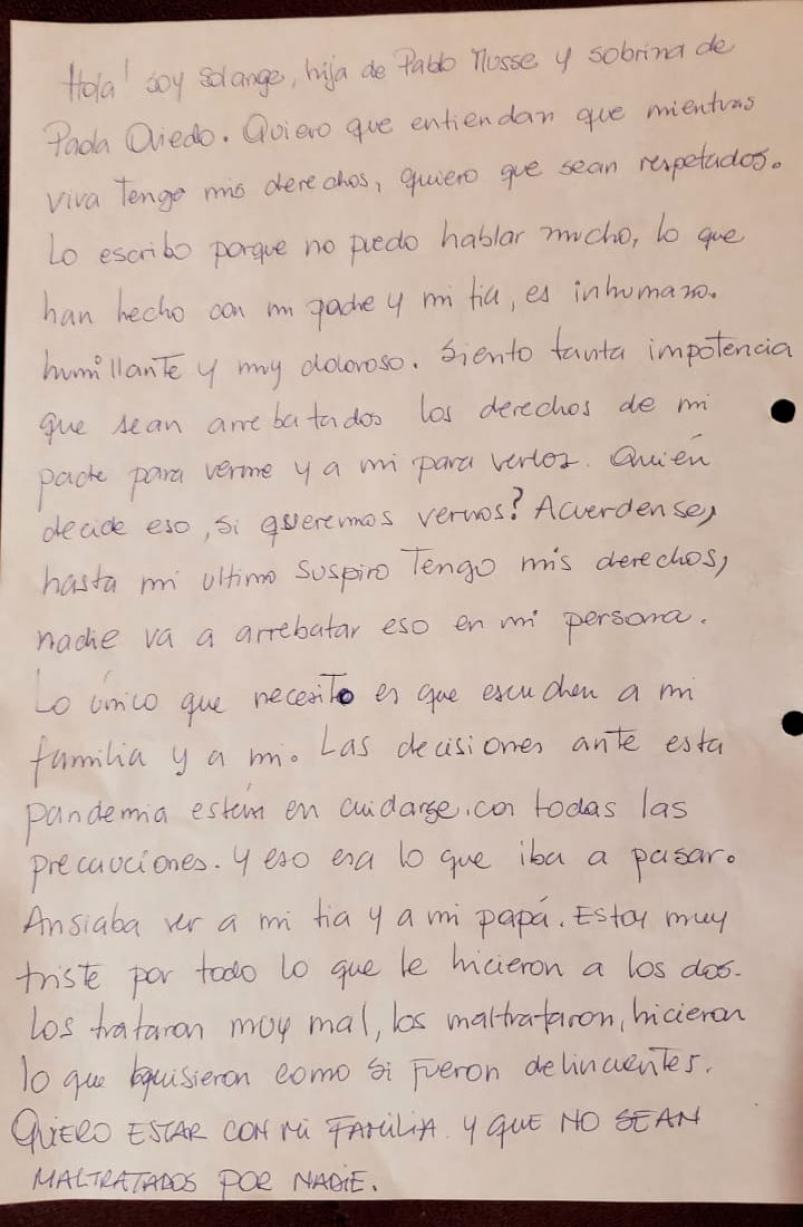 Hola! soy Solange, hija de Pablo Musse y sobrina de
Paola Oviedo. Quiero que entiendan que mientras
viva Tengo mis derechos, quiero que sean respetados.
Lo escribo porque no puedo hablar mucho, lo que
han hecho con mi padre y mi tia, es inhumano.
humillante y muy doloroso. Siento tanta impotencia
que sean arrebatados los derechos de mi
padre para verme y a mi para verlos. Quién
decide eso, si queremos vernos? Acuerdense,
hasta mi ultimo suspiro Tengo mis derechos,
nadie va a arrebatar eso en mi persona.
Lo único que necesito es que escuchen a mi
familia y a mi. Las decisiones ante esta
pandemia están en cuidarse.con todas las
precauciones. y eso era lo que iba a pasar.
Ansiaba ver a mi tia y a mi papá. Estoy muy
triste por todo lo que le hicieron a los dos.
Los trataron muy mal, los maltrataron, hicieron
lo que quisieron como si fueron delincuentes.
QUIERO ESTAR CON MI FAMILIA. Y QUE NO SEAN
MALTRATADOS POR NADIE.